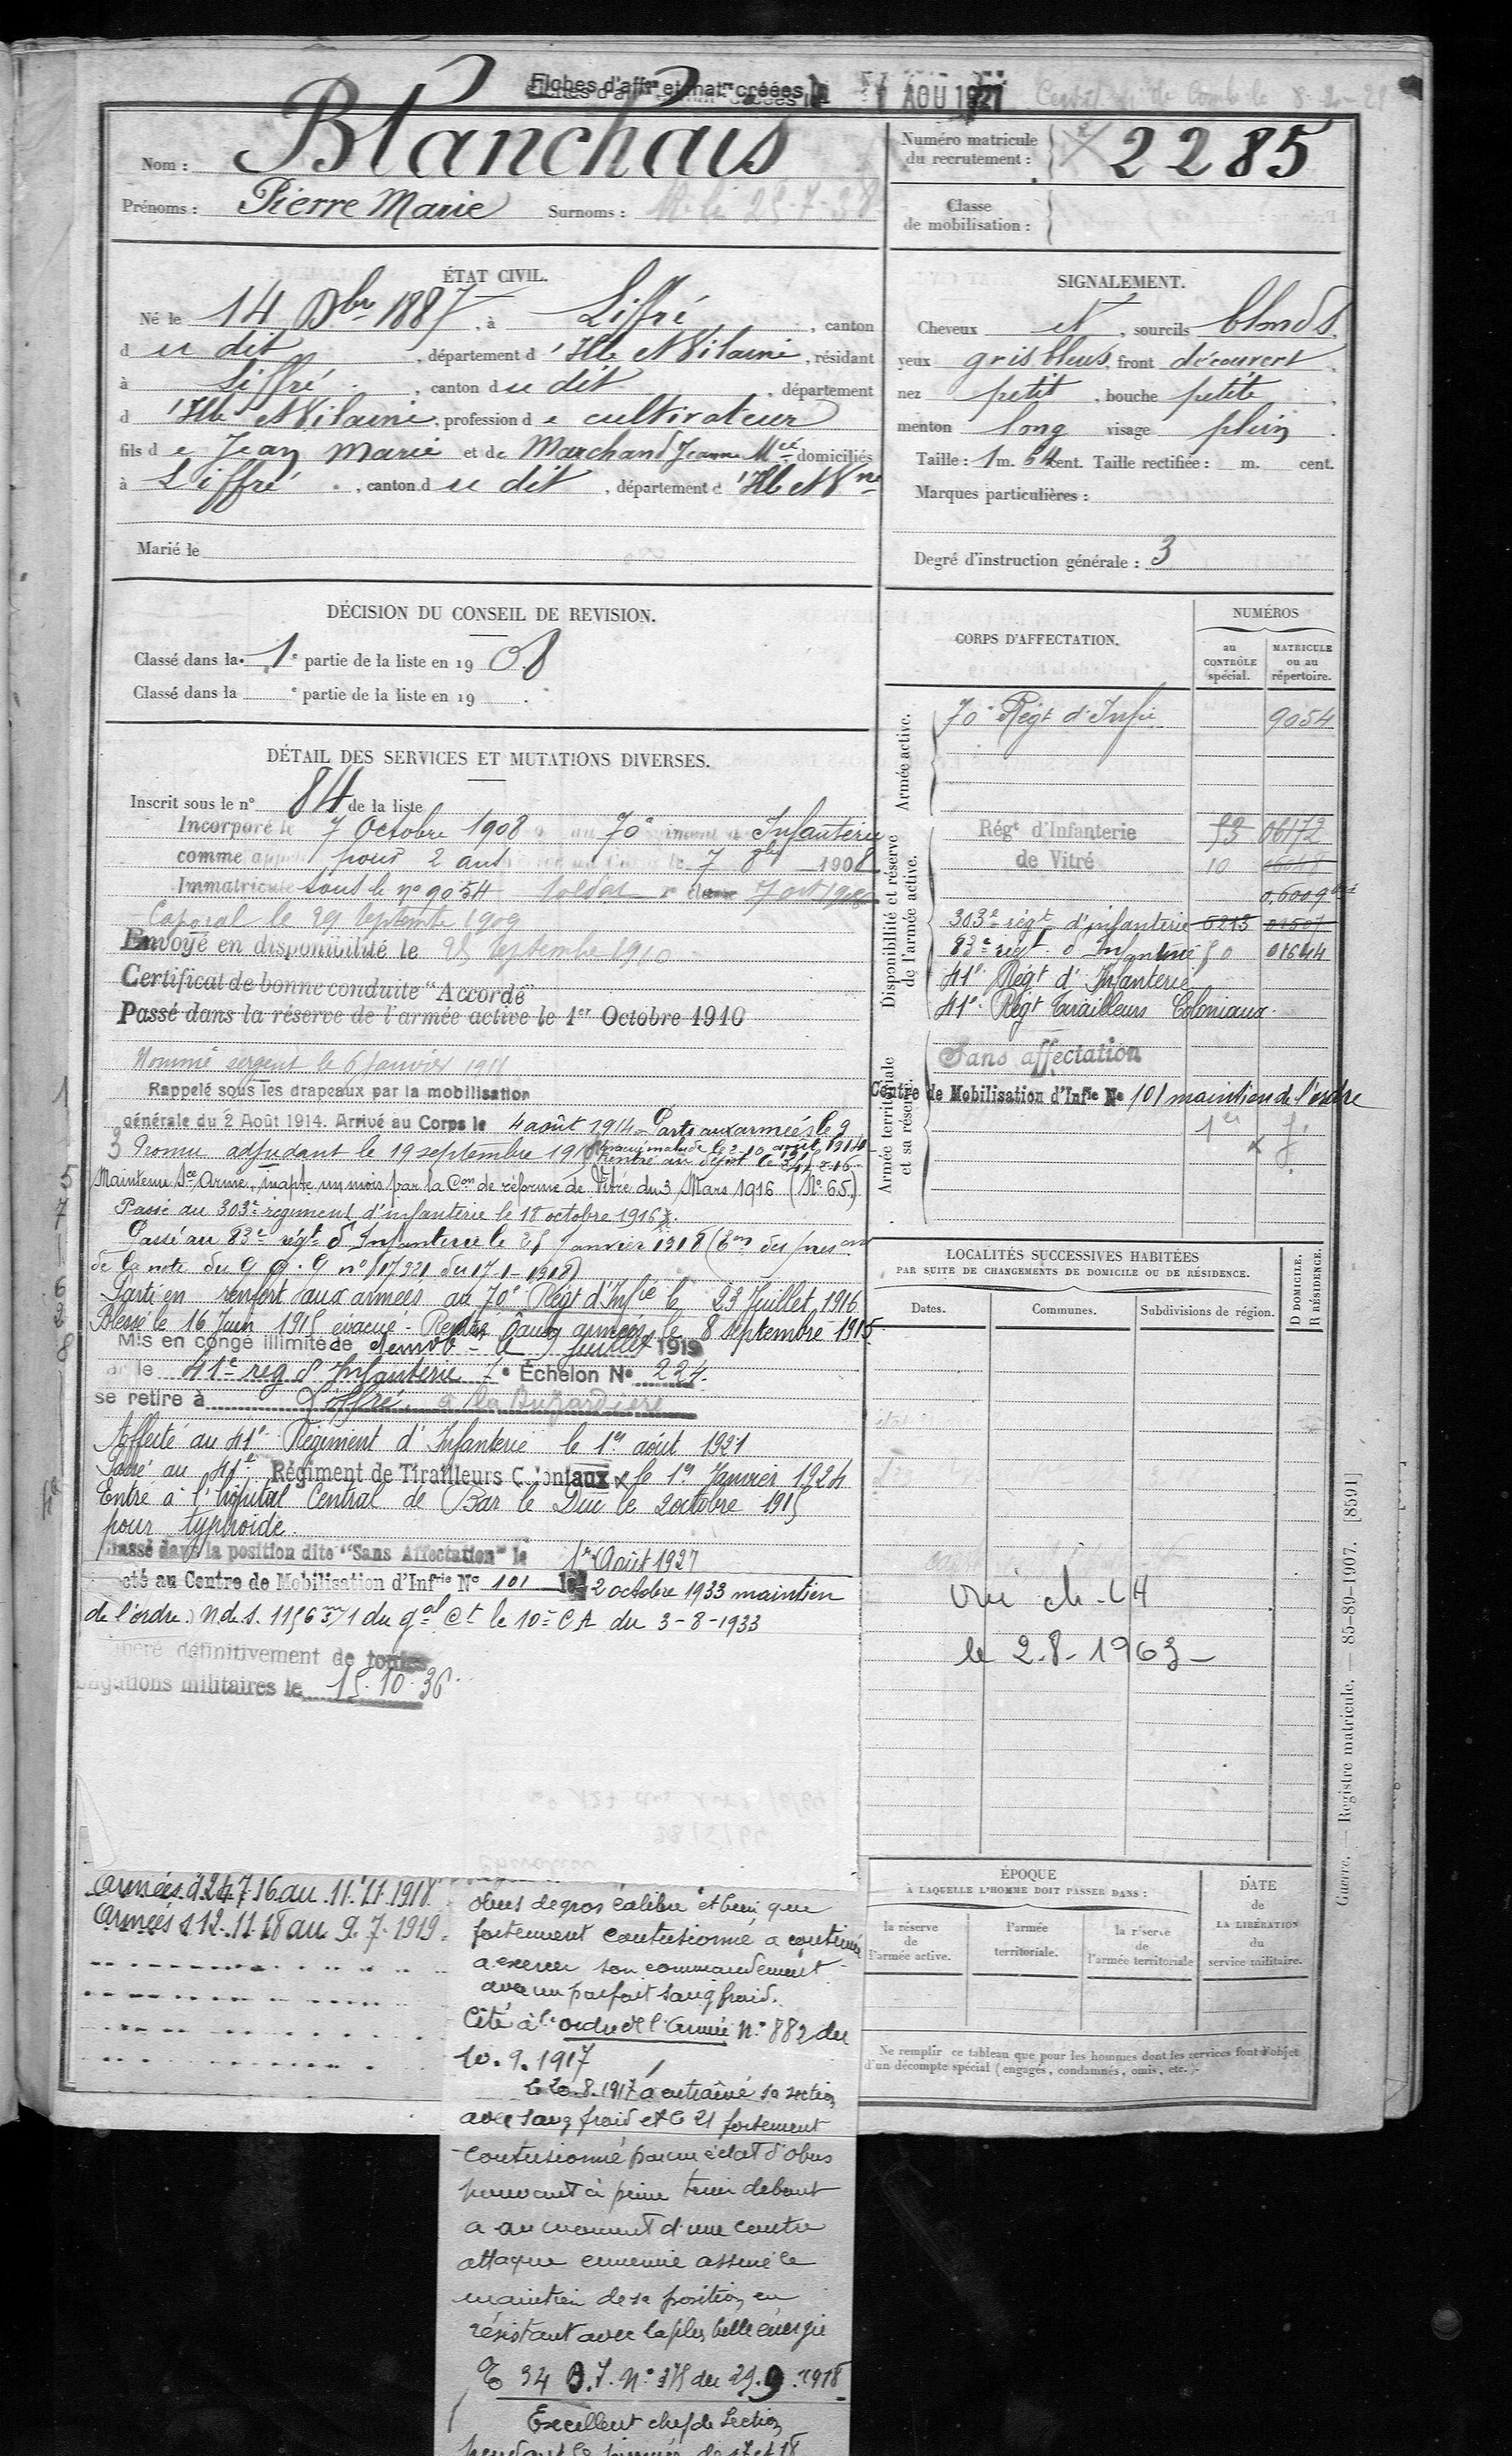 Fiches d'affon et mat. créées le 1 AOU 1927
Blanchais
Nom :
Prénoms : Pierre Marie Surnoms :
Numéro matricule
du recrutement : 2285
Classe
de mobilisation :
ÉTAT CIVIL.
Né le 14 Xbre 1887, à Liffré, canton
du dit, département d'Ille et Vilaine, résidant
à Liffré, canton du dit, département
d'Ille et Vilaine, profession de cultivateur
fils de Jean Marie et de Marchand Jeanne Mie domiciliés
à Liffré, canton du dit, département d'Ille et Vne
Marié le
SIGNALEMENT.
Cheveux et, sourcils blonds,
yeux gris bleus, front découvert,
nez petit, bouche petite,
menton long visage plein.
Taille : 1 m. 64 cent. Taille rectifiée : m. cent.
Marques particulières :
Degré d'instruction générale : 3
DÉCISION DU CONSEIL DE REVISION.
Classé dans la 1e partie de la liste en 1908
Classé dans la e partie de la liste en 19 .
DÉTAIL DES SERVICES ET MUTATIONS DIVERSES.
Inscrit sous le n° 84 de la liste
Incorporé le 7 Octobre 1908 au 70e régiment d'Infanterie
comme appelé pour 2 ans 7 8bre 1908
Immatriculé sous le n° 9054 soldat 2e classe 7 oct 1908
Caporal le 29 Septembre 1909
Envoyé en disponibilité le 25 Septembre 1910
Certificat de bonne conduite "Accordé"
Passé dans la réserve de l'armée active le 1er Octobre 1910
Nommé sergent le 6 Janvier 1911
Rappelé sous les drapeaux par la mobilisation
générale du 2 Août 1914. Arrivé au Corps le 4 août 1914. Parti aux armées le 9 août 1914
Promu adjudant le 19 septembre 1915
Evacué malade le 2-10-1915
Rentré au dépôt le
Maintenu Sce Armé, inapte un mois par la Con de réforme de Vitré du 3 Mars 1916 (N° 65)
Passé au 303e régiment d'infanterie le 18 octobre 1916.
Passé au 83e régt d'Infanterie le 25 Janvier 1918
de la note du G Q G n° 17321 du 17-1-1918)
Parti en renfort aux armées au 70e Régt d'Infie le 23 Juillet 1916
Blessé le 16 Juin 1915 évacué - Reparti aux armées le 8 septembre 1915
Mis en congé illimité de démob. le 9 Juillet 1919
par le 41e rég d'Infanterie 7e Échelon N° 224.
se retire à Liffré, à la Buzardière
Affecté au 41e Régiment d'Infanterie le 1er août 1921
Passé au 41e Régiment de Tirailleurs Coloniaux le 1er Janvier 1924
Entré à l'hôpital Central de Bar le Duc le 2 octobre 1915
pour typhoïde.
Classé dans la position dite "Sans Affectation" le 1er Août 1927
Affecté au Centre de Mobilisation d'Infrie N° 101 le 2 octobre 1933 maintien
de l'ordre. N.d.s. 1156 3/1 du gal Ct le 10e C.A du 3-8-1933
Libéré définitivement de toutes
obligations militaires le 15.10.36.
CORPS D'AFFECTATION.
NUMÉROS
au CONTRÔLE spécial.
MATRICULE ou au répertoire.
Armée active.
70e Régt d'Infie 9054
Disponibilité et réserve de l'armée active.
Régt d'Infanterie 53 06172
de Vitré 10
303e régt d'infanterie 6213 01507
83e régt d'Infanterie 50 01644
41e Régt d'Infanterie
41e Régt Tirailleurs Coloniaux.
Armée territoriale et sa réserve.
Sans affectation
Centre de Mobilisation d'Infie N° 101 maintien de l'ordre
LOCALITÉS SUCCESSIVES HABITÉES
PAR SUITE DE CHANGEMENTS DE DOMICILE OU DE RÉSIDENCE.
Dates. Communes. Subdivisions de région. D DOMICILE. R RÉSIDENCE.
le 2-8-1963-
ÉPOQUE
À LAQUELLE L'HOMME DOIT PASSER DANS :
la réserve de l'armée active.
l'armée territoriale.
la réserve de l'armée territoriale
DATE de LA LIBÉRATION du service militaire.
Ne remplir ce tableau que pour les hommes dont les services font l'objet
d'un décompte spécial (engagés, condamnés, omis, etc.).
Guerre. — Registre matricule. — 85-89-1907. [8591]
Armées d 24.7.16 au 11.11.1918
Armées d 12.11.18 au 9.7.1919.
obus de gros calibre et bien que
fortement contusionné a continué
à exercer son commandement
avec un parfait sang froid.
Cité à l'ordre de l'Armée N° 882 du
10.9.1917
Le 20.8.1917 a entraîné sa section
avec sang froid et le 21 fortement
contusionné par un éclat d'obus
pouvant à peine tenir debout
a au moment d'une contre
attaque ennemie assuré le
maintien de sa position en
résistant avec la plus belle énergie
34 D.I. N° 375 du 29.9.1918
Excellent chef de Section